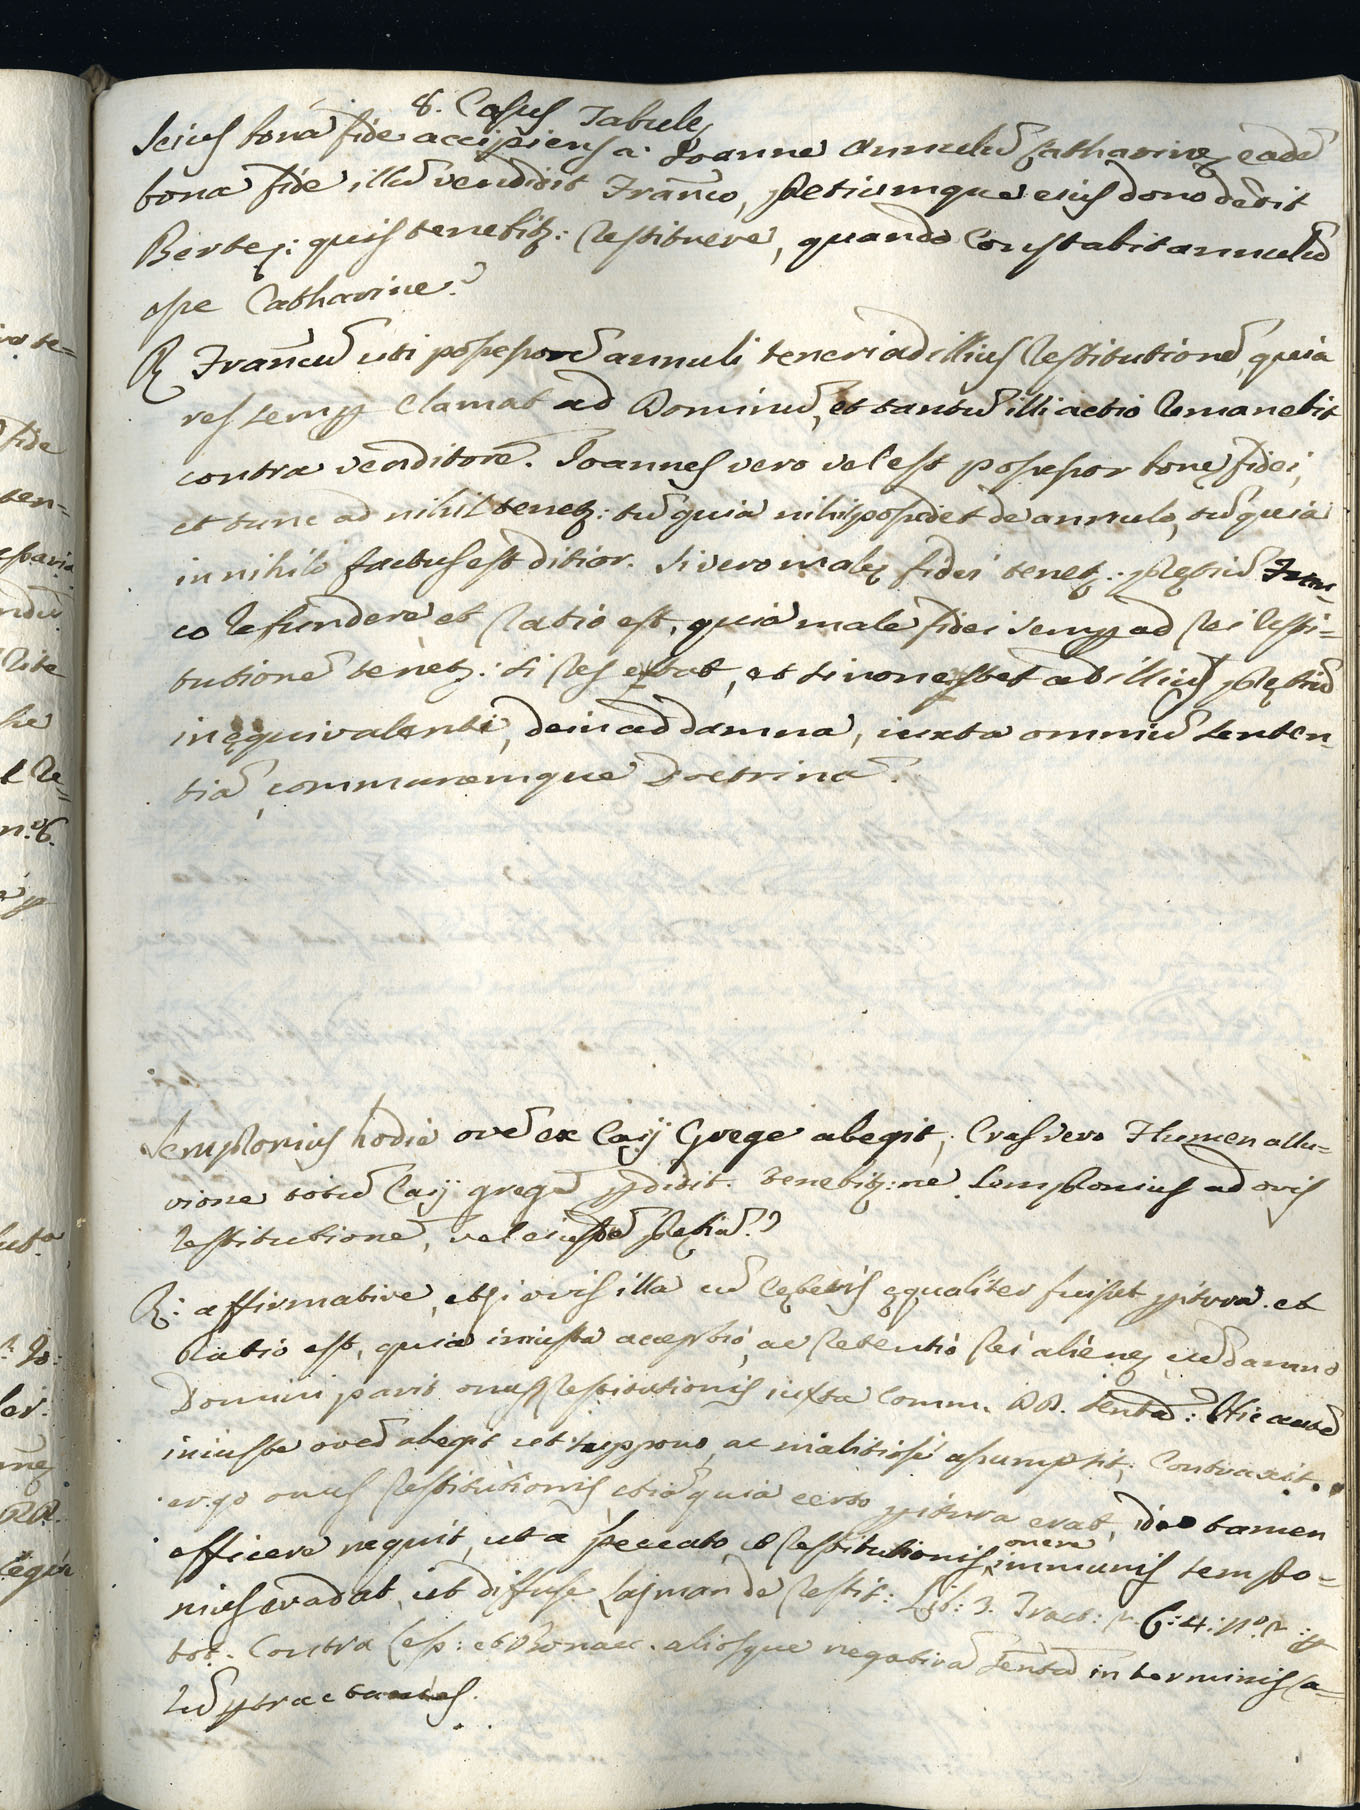 8. Casus Tabule
Seius bona fide accipiens a Joanne Annulū Catharinę, eadē
bona fide illū vendidit Frañco, pretiumque eius dono dedit
Bertę: quis tenebitʒ: restituere, quando constabit annulū
esse Catharine?
R. Frañcū uti possessorē annuli teneri ad illius restitutionē, quia
res semp clamat ad Dominū, et tantū illi actio remanebit
contra venditorē. Joannes vero vel est possessor bonę fidei,
et tunc ad nihil tenetʒ: tū quia nihil possidet de annulo, tū quia
in nihilo factus est ditior. Si vero malę fidei tenetʒ: prętiū Fran-
co refundere et ratio est, quia male fidei semp ad rei resti-
tutionē tenetʒ: si res extat, et si non extet ad illius prętiū
in ęquivalenti, dein ad damna, iuxta omniū senten-
tiā, communemque Doctrinā.
Sempronius hodie ovē ex Caij Grege abegit, Cras vero Flumen allu-
vione totū Caij gregē pdidit. Tenebitʒ: ne Sempronius ad ovis
restitutionē, vel eiusdē prętiū?
R: affirmative, etsi ovis illa cū cęteris ęqualiter fuisset pitura. et
Ratio est, quia iniusta acceptio, ac retentio rei alienę cū damno
Domini parit onus restitutionis iuxta Comm. DD. sentā: Hic autē
iniuste ovē abegit ut suppono, ac malitiose assumpsit, Contraxit
ergo onus restitutionis, etiā quia certo pitura erat, ideo tamen
efficere nequit, ut a peccato, et restitutionis onere immunis sempro-
nius evadat, ut diffuse Lajman de restit: Lib: 3. Tract: 2. C: 4: Nº. 2 : p
tot. Contra Less: et Bonac. aliosque negativā sentā in terminis ca-
sū ptractantes.